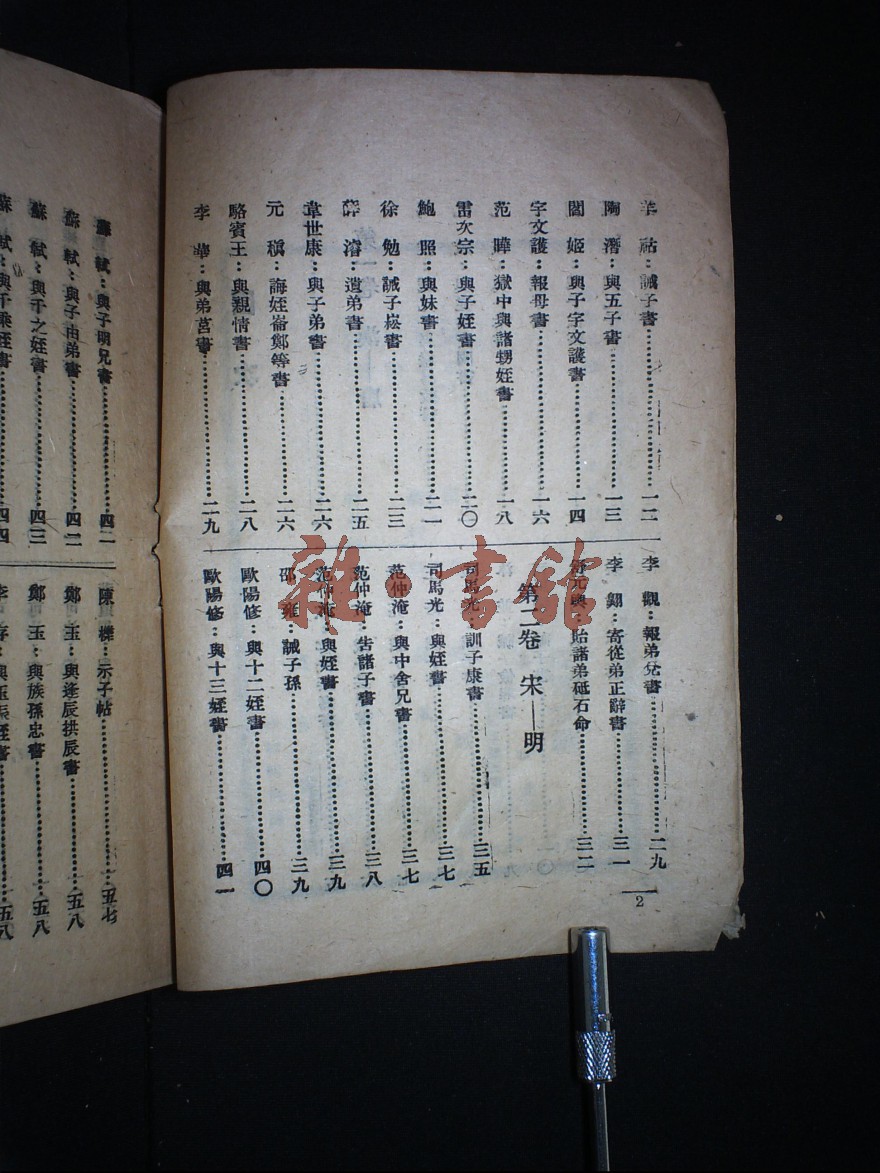 羊祜：誡子書…………一二
陶潛：與五子書…………一三
閻姬：與子宇文護書…………一四
宇文護：報母書…………一六
范曄：獄中與諸甥姪書…………一八
雷次宗：與子姪書…………二〇
鮑照：與妹書…………二一
徐勉：誡子崧書…………二三
薛濬：遺弟書…………二五
韋世康：與子弟書…………二六
元稹：誨姪崙鄭等書…………二六
駱賓王：與親情書…………二八
李華：與弟莒書…………二九
李觀：報弟兌書…………二九
李翺：寄從弟正辭書…………三一
舒元輿：貽諸弟砥石命…………三二
第二卷 宋——明
司馬光：訓子康書…………三五
司馬光：與姪書…………三七
范仲淹：與中舍兄書…………三七
范仲淹：告諸子書…………三八
范仲淹：與姪書…………三九
邵雍：誡子孫…………三九
歐陽修：與十二姪書…………四〇
歐陽修：與十三姪書…………四一
2
蘇軾：與子明兄書…………四二
蘇軾：與子由弟書…………四二
蘇軾：與千之姪書…………四三
蘇軾：與千乘姪書…………四四
陳櫟：示子帖…………五七
鄭玉：與逢辰拱辰書…………五八
鄭玉：與族孫忠書…………五八
雜·書館